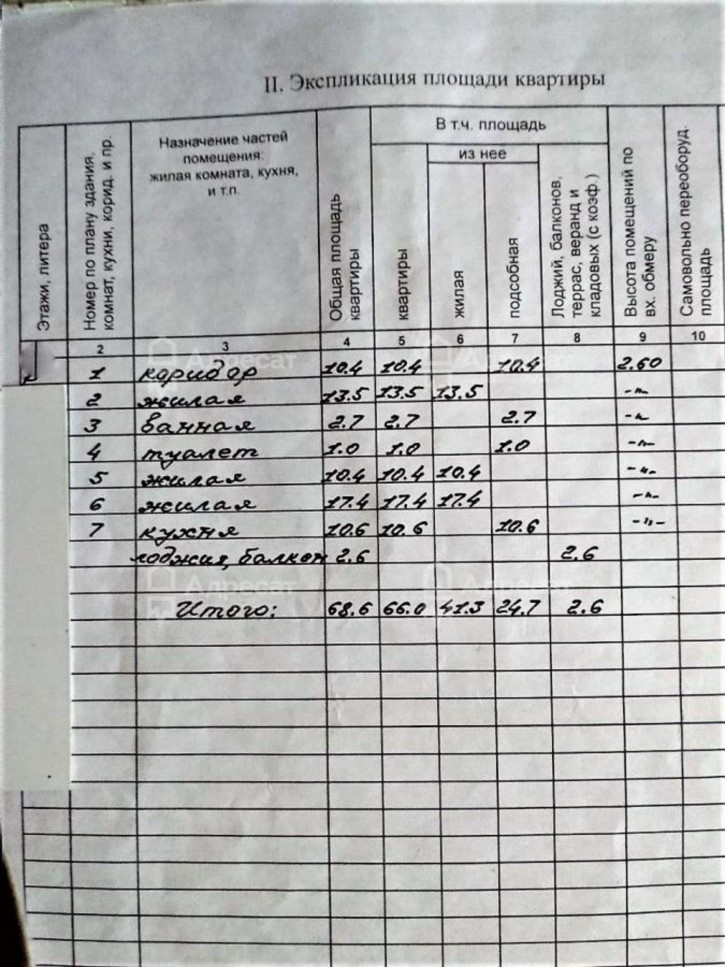 II. Экспликация площади квартиры
Этажи, литера
Номер по плану здания, комнат, кухни, корид. и пр.
Назначение частей
помещения:
жилая комната, кухня,
и т.п.
Общая площадь
квартиры
В т.ч. площадь
квартиры
из нее
жилая
подсобная
Лоджий, балконов,
террас, веранд и
кладовых (с коэф.)
Высота помещений по
вх. обмеру
Самовольно переоборуд.
площадь
2 3 4 5 6 7 8 9 10
1 коридор 10.4 10.4 10.4 2.60
2 жилая 13.5 13.5 13.5 -"-
3 ванная 2.7 2.7 2.7 -"-
4 туалет 1.0 1.0 1.0 -"-
5 жилая 10.4 10.4 10.4 -"-
6 жилая 17.4 17.4 17.4 -"-
7 кухня 10.6 10.6 10.6 -"-
лоджия, балкон 2.6 2.6
Итого: 68.6 66.0 41.3 24.7 2.6
Адресат
Адресат
Адресат
Адресат